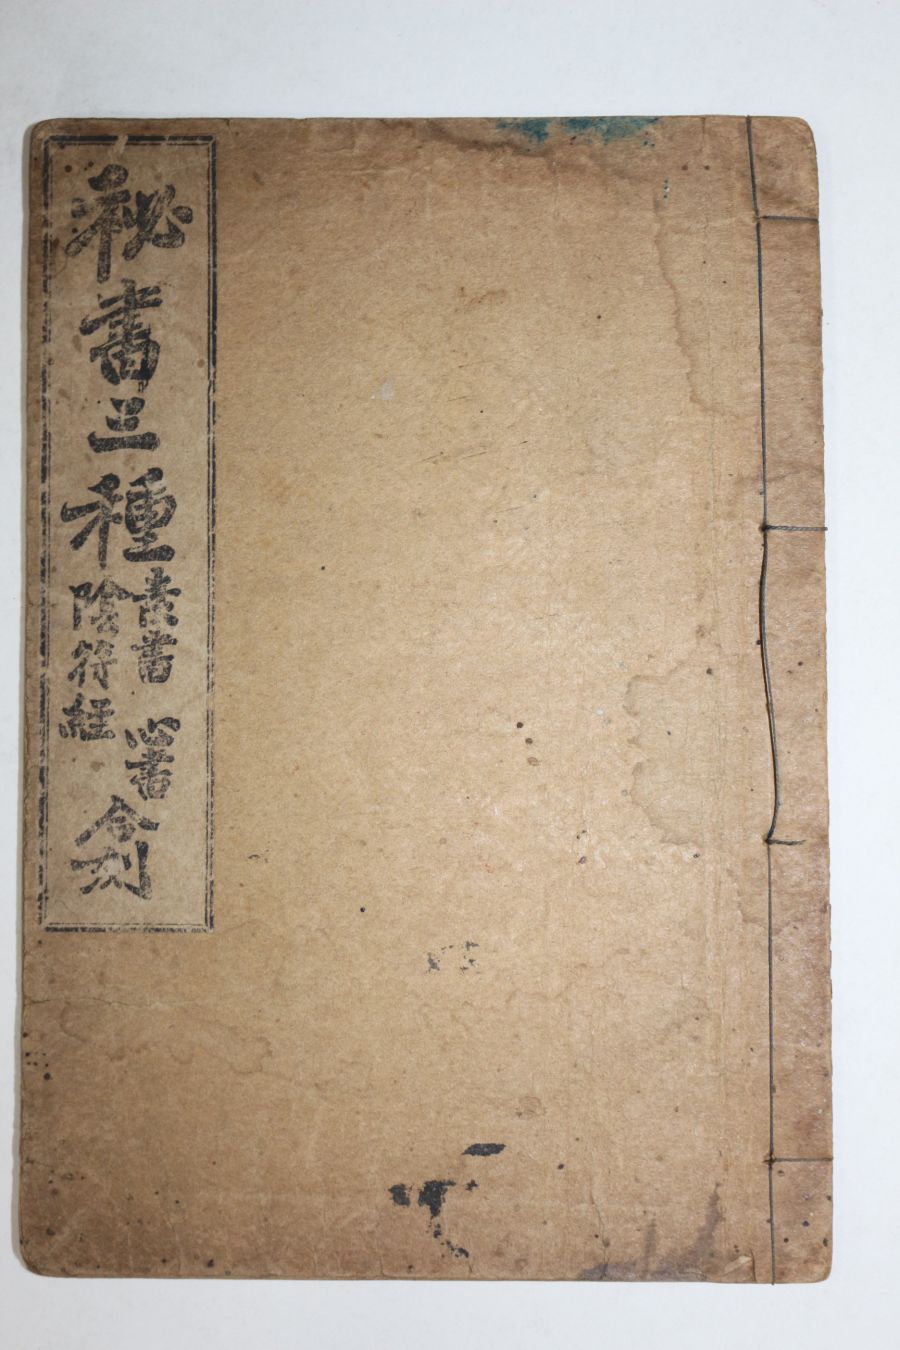 秘書三種
素書 心書
陰符經
合刻